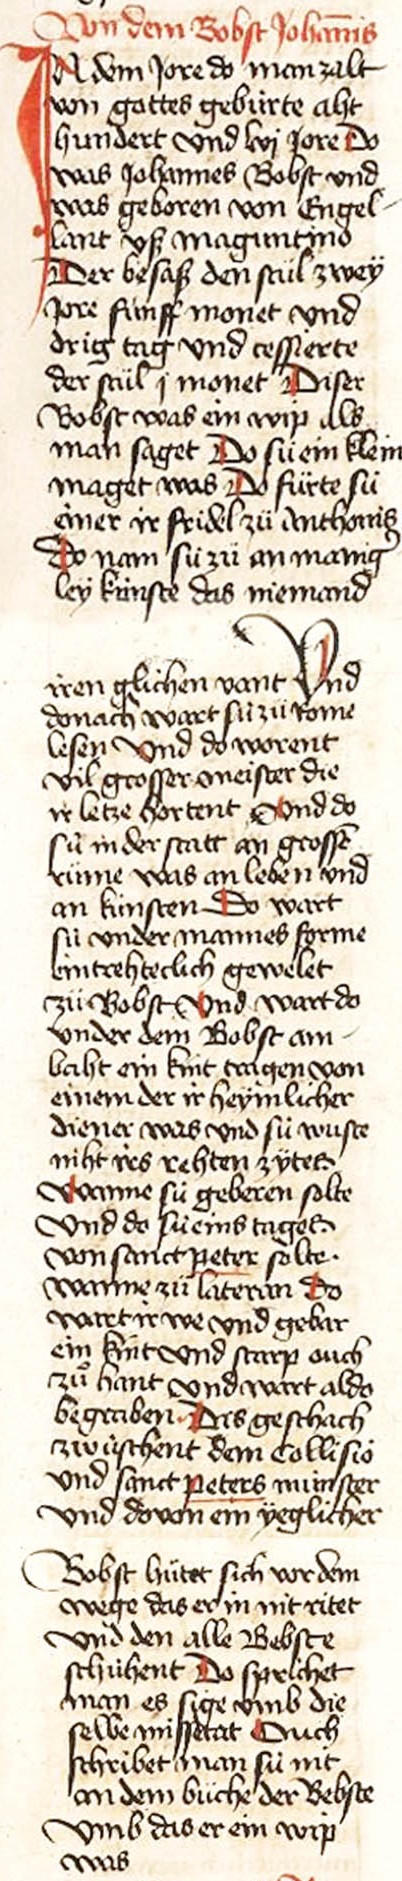 Von dem Bobst Johannis
In dem Jore do man zalt
von gottes gebürte aht
hundert vnd lvj Jore Do
was Johannes Bobst vnd
was geboren von Engel-
lant vß maguntino
Der besaß den stůl zwey
Jore fünff monet vnd
drig tag vnd cessierte
der stůl j monet Diser
Bobst was ein wip als
man saget Do sü ein klein
maget was Do fürte sü
einer ir fridel zů Anthonis
Do nam sü zů an manig
ley künste das niemand
iren glichen vant Vnd
donach wart sü zů Rome
lesen Vnd do worent
vil grosser meister die
ir letze hortent Vnd do
sü in der statt an grossē
rüme was an leben vnd
an künsten Do wart
sü vnder mannes forme
eintrehteclich gewelet
zů Bobst Vnd wart do
vnder dem Bobst am-
baht ein kint tragen von
einem der ir heymlicher
diener was vnd sü wuste
niht irs rehten zytes
Wanne sü geberen solte
Vnd do sü eins tages
von sanct peter solte
wanne zů lateran Do
wart ir we vnd gebar
ein kint vnd starp ouch
zů hant vnd wart aldo
begraben Dis geschach
zwüschent dem Collisio
vnd sanct peters münster
vnd dovon ein yeglicher
Bobst hütet sich vor dem
wege das er in nit ritet
vnd den alle Bebste
schühent Do sprichet
man es sige vmb die
selbe missetat Ouch
schribet man sü nit
an dem büche der Bebste
vmb das er ein wip
was